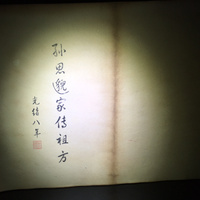 孙思邈家传祖方
光绪八年